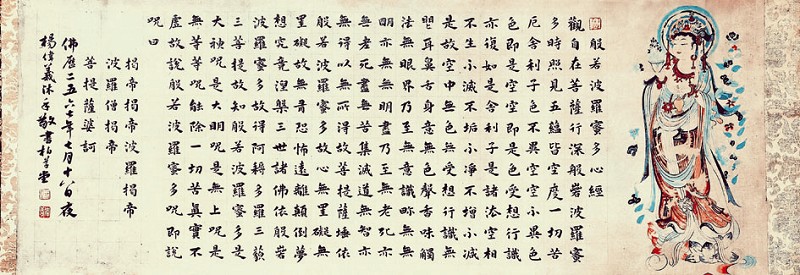 般若波羅蜜多心經
觀自在菩薩行深般若波羅蜜
多時照見五蘊皆空度一切苦
厄舍利子色不異空空不異色
色即是空空即是色受想行識
亦復如是舍利子是諸法空相
不生不滅不垢不淨不增不減
是故空中無色無受想行識無
眼耳鼻舌身意無色聲香味觸
法無眼界乃至無意識界無無
明亦無無明盡乃至無老死亦
無老死盡無苦集滅道無智亦
無得以無所得故菩提薩埵依
般若波羅蜜多故心無罣礙無
罣礙故無有恐怖遠離顛倒夢
想究竟涅槃三世諸佛依般若
波羅蜜多故得阿耨多羅三藐
三菩提故知般若波羅蜜多是
大神呪是大明呪是無上呪是
無等等呪能除一切苦真實不
虛故說般若波羅蜜多呪即說
呪曰
揭帝揭帝波羅揭帝
波羅僧揭帝
菩提薩婆訶
佛曆二五六七年七月十八日夜
楊偉義沐手敬書於草堂